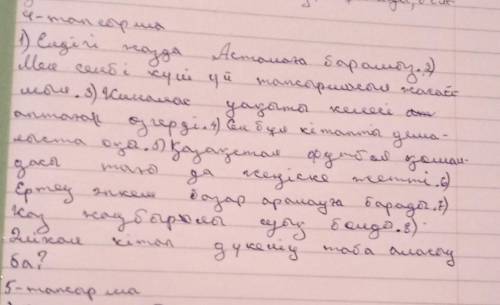 4-тапсырма
1) Ендігі жазда Астанаға барамыз. 2)
Мен сенбі күні үй тапсырмасын жасай
мын. 3) Жиналас уақыты келесі
аптаға өзгерді. 4) Сен бұл кітапты дема-
лыста оқы. 5) Қазақстан футбол коман-
дасы тағы да жеңіске жетті. 6)
Ертең әпкем базар аралауға барады. 7)
Қаз жаңбырлы суық болды. 8)
Әлихан кітап дүкенің таба аласың
ба?
5-тапсырма